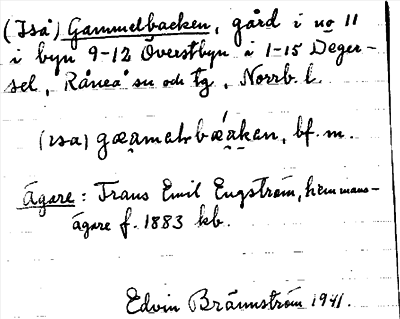 (Iså) Gammelbacken, gård i no 11
i byn 9-12 Överstbyn i 1-15 Deger-
sel, Råneå sn och tg, Norrb. l.
(ısa) bf. m.
Ägare: Frans Emil Engström, hemmans-
ägare f. 1883 kb.
Edvin Brännström 1941.